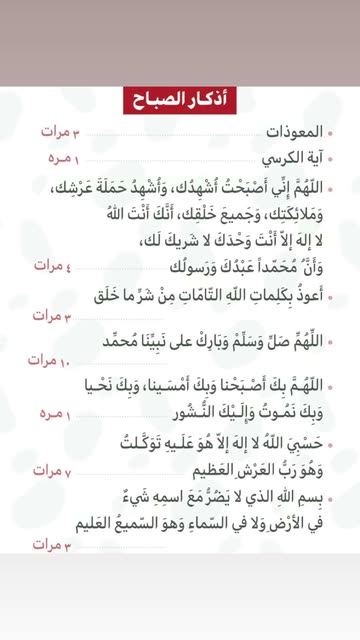 أذكار الصباح
• المعوذات ٣ مرات
• آية الكرسي ١ مره
• اللّهُمَّ إِنِّي أَصْبَحْتُ أُشْهِدُك، وَأُشْهِدُ حَمَلَةَ عَرْشِك،
وَمَلائِكَتِك، وَجَميعَ خَلْقِك، أَنَّكَ أَنْتَ اللهُ
لا إلهَ إلاّ أَنْتَ وَحْدَكَ لا شَريكَ لَك،
وَأَنَّ مُحَمّداً عَبْدُكَ وَرَسولُك ٤ مرات
• أعوذُ بِكَلِماتِ اللّهِ التّامّاتِ مِنْ شَرِّ ما خَلَق
٣ مرات
• اللَّهُمِّ صَلِّ وَسَلِّمْ وَبَارِكْ على نَبِيِّنَا مُحمِّد
١٠ مرات
• اللّهُـمَّ بِكَ أَصْـبَحْنا وَبِكَ أَمْسَـينا، وَبِكَ نَحْـيا
وَبِكَ نَمُـوتُ وَإِلَـيْكَ النُّـشُور ١ مـره
• حَسْبِيَ اللّهُ لا إلهَ إلاّ هُوَ عَلَـيهِ تَوَكَّـلتُ
وَهُوَ رَبُّ العَرْشِ العَظيم ٧ مرات
• بِسمِ اللهِ الذي لا يَضُرُّ مَعَ اسمِهِ شَيءٌ
في الأرْضِ وَلا في السّماءِ وَهوَ السّميعُ العَليم
٣ مرات